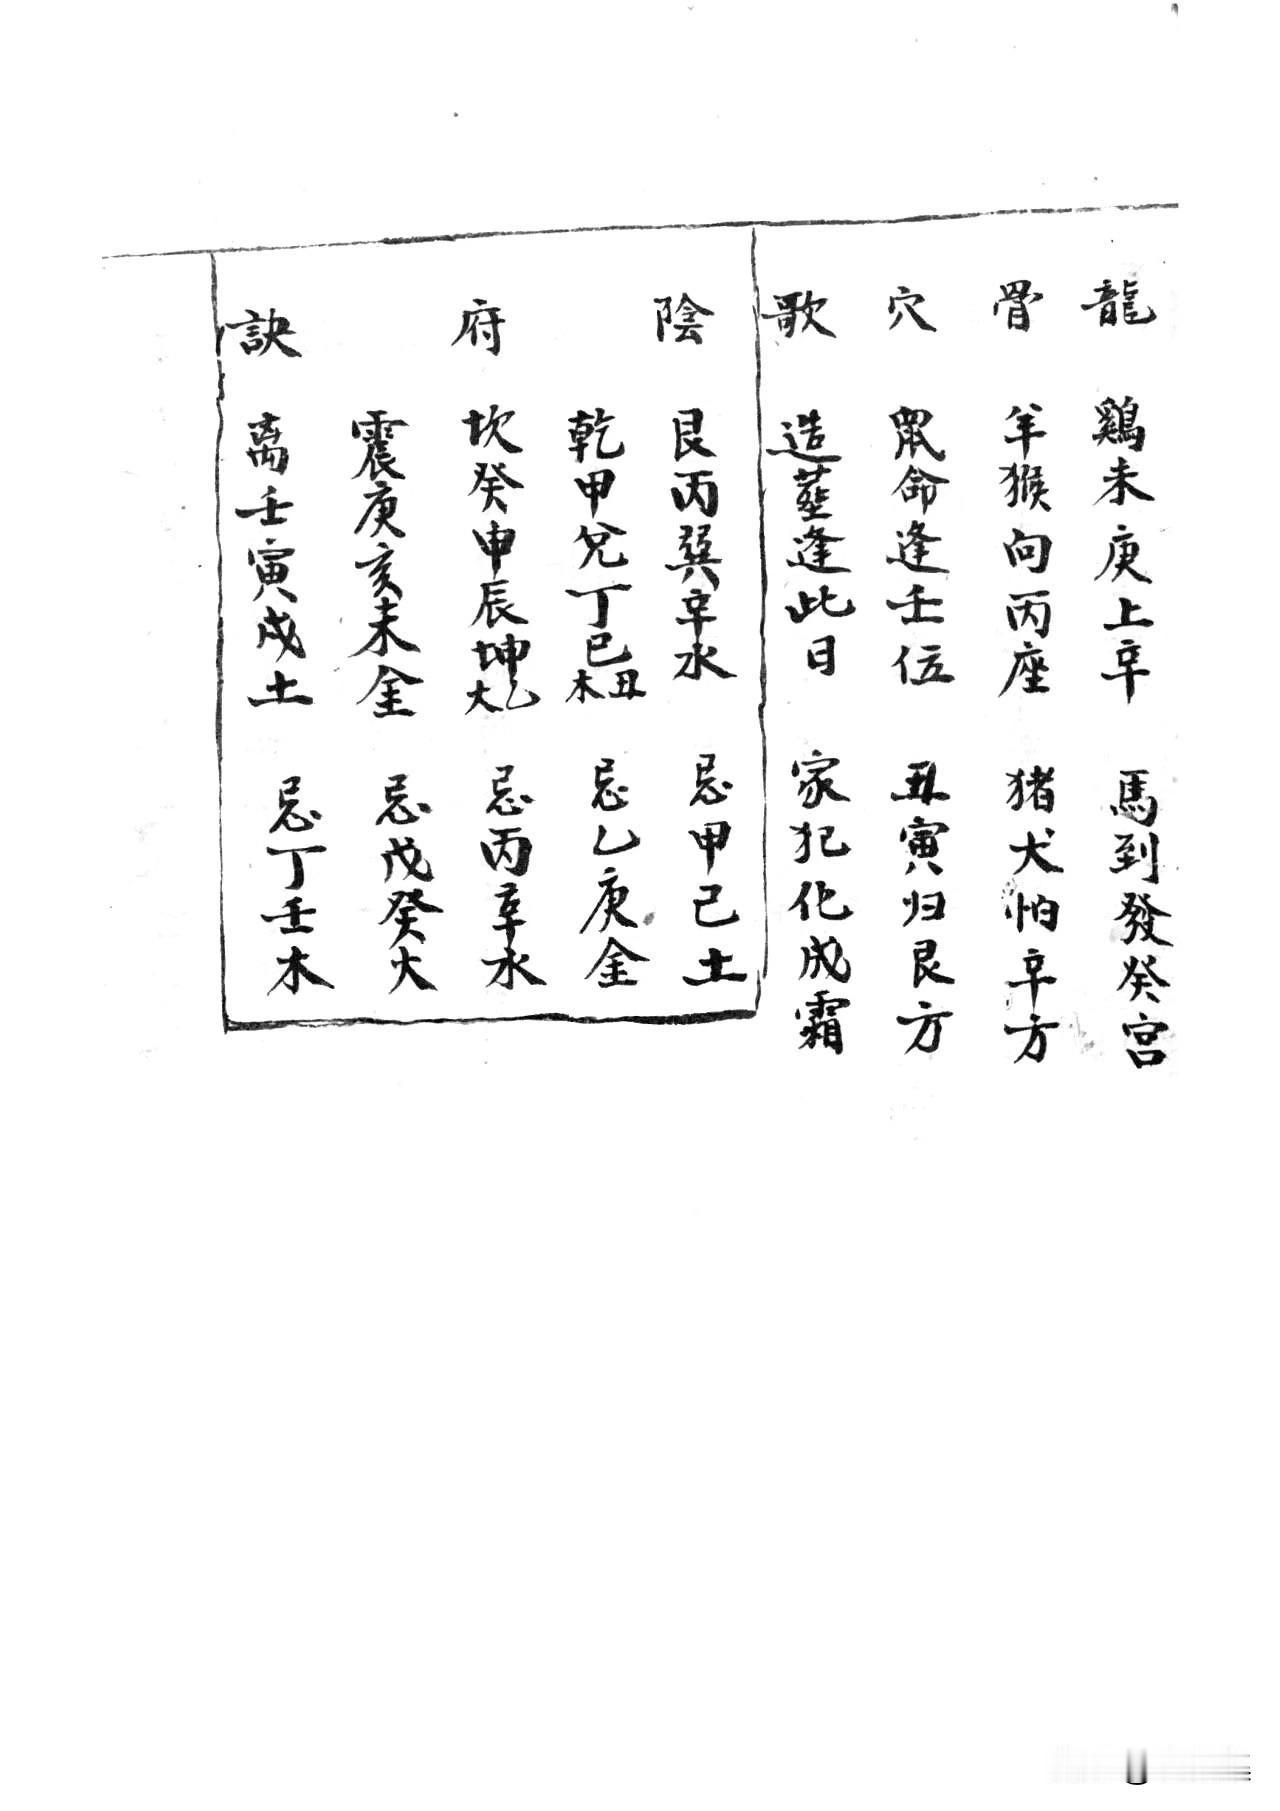 龍　鷄未庚上辛　馬到發癸宫
骨　羊猴向丙座　猪犬怕辛方
穴　鼠命逢壬位　丑寅归艮方
歌　造塟逢此日　家犯化成霜
陰　艮丙巽辛水　忌甲己土
乾甲兌丁巳丑木　忌乙庚金
府　坎癸申辰坤乙火　忌丙辛水
震庚亥未金　忌戊癸火
訣　离壬寅戌土　忌丁壬木